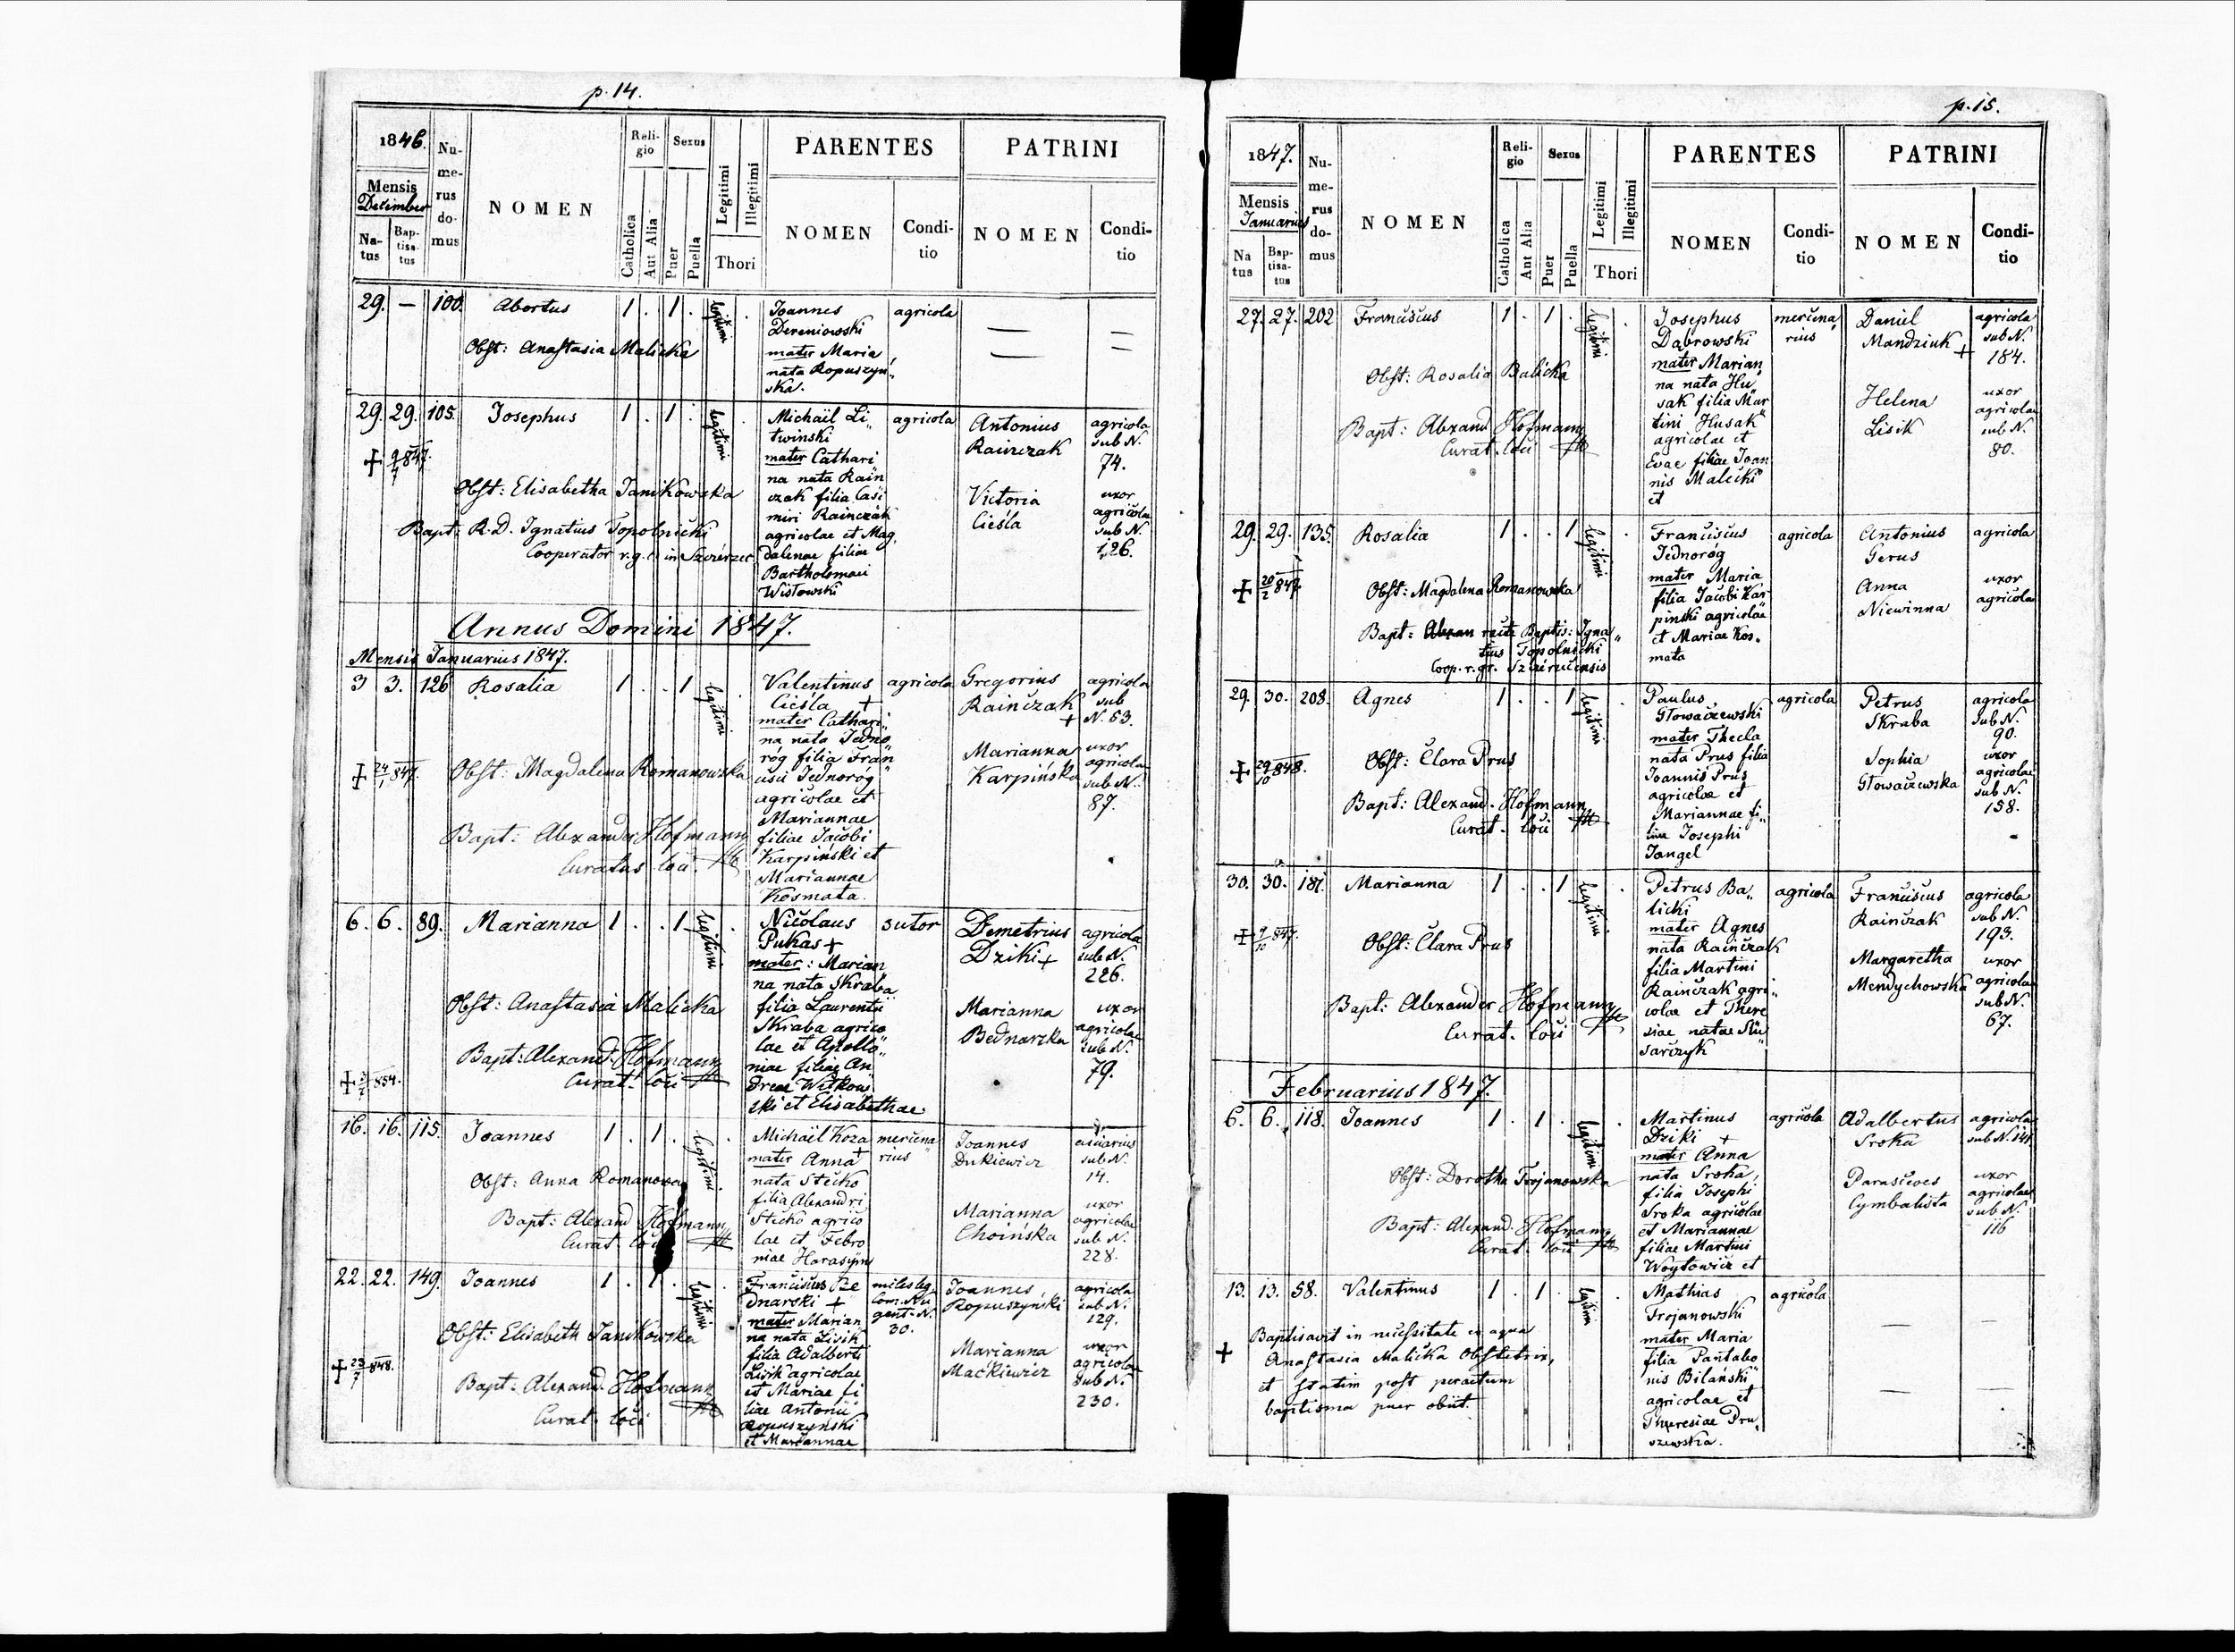 p. 14.
1846.
Numerus domus
NOMEN
Religio
Sexus
Legitimi
Illegitimi
PARENTES
PATRINI
Mensis
December
Natus
Baptisatus
Catholica
Aut Alia
Puer
Puella
Thori
NOMEN
Conditio
NOMEN
Conditio
29. — 100. Abortus 1 . 1 . legitimi . Joannes agricola
Dereniowski
Obst: Anastasia Malicka
mater Maria
nata Ropuszyn„
ska.
29. 29. 105. Josephus 1 . 1 . legitimi . Michaël Li„ agricola Antonius agricola
twinski Rainczak sub N.
mater Cathari 74.
na nata Rain
Obst: Elisabetha Janikowska
czak filia Casi Victoria uxor
miri Rainczak Cieśla agricolae
agricolae et Mag. sub N.
Bapt: R.D. Ignatius Topolnicki
Cooperator r.g.c. in Szczerzec
dalenae filiae 126.
Bartholomaei
Wisłowski
Annus Domini 1847.
Mensis Januarius 1847.
3 3. 126 Rosalia 1 . . 1 legitimi . Valentinus agricola Gregorius agricola
Cieśla + Rainczak + sub
mater Cathari„ N. 63.
na nata Jedno
róg filia Fran Marianna uxor
+ 24/1 847. Obst: Magdalena Romanowska
cisci Jednoróg Karpińska agricolae
agricolae et sub N.
Mariannae 87.
Bapt: Alexander Hofmann
Curatus loci
filiae Jacobi
Karpiński et
Mariannae
Kosmata.
6. 6. 89. Marianna 1 . . 1 legitimi . Nicolaus sutor Demetrius agricola
Pukas + Dziki + sub N.
mater: Marian 226.
na nata Skraba
Obst: Anastasia Malicka
filia Laurentii Marianna uxor
Skraba agrico Bednarzka agricolae
lae et Apollo„ sub N.
Bapt: Alexand. Hofmann
Curat. loci
niae filiae An 79.
dreae Witkow
ski et Elisabethae.
16. 16. 115. Joannes 1 . 1 . legitimi . Michaël Koza mercena Joannes
mater Anna rius Dukiewicz sub N.
Obst: Anna Romanowa
nata Stecko 14.
filia Alexandri
Bapt: Alexand Hofmann
Curat. loci
Stecko agrico Marianna uxor
lae et Febro Choińska agricolae
niae Harasym sub N.
228.
22. 22. 149. Joannes 1 . 1 . legitimi . Franciscus Be miles leg. Joannes agricola
dnarski + Ropuszyński sub N.
mater Marian gent. N. 129.
na nata Lisik 30.
Obst: Elisabeth Janikowska
filia Adalberti Marianna uxor
+ 23/7 848. Lisik agricolae Mackiewicz agricolae
et Mariae fi sub N.
Bapt: Alexand. Hofmann
Curat. loci
liae Antonii 230.
Ropuszyński
et Mariannae
p. 15.
1847.
Numerus domus
NOMEN
Religio
Sexus
Legitimi
Illegitimi
PARENTES
PATRINI
Mensis
Januarius
Natus
Baptisatus
Catholica
Aut Alia
Puer
Puella
Thori
NOMEN
Conditio
NOMEN
Conditio
27. 27. 202 Franciscus 1 . 1 . legitimi . Josephus mercena„ Daniel agricola
Dąbrowski rius Mandziuk + sub N.
mater Marian 184.
Obst: Rosalia Balicka
na nata Hu„
sak filia Mar Helena uxor
tini Husak Lisik agricolae
Bapt: Alexand Hofmann
Curat. loci
agricolae et sub N.
Evae filiae Joan 80.
nis Malecki
et
29. 29. 135. Rosalia 1 . . 1 legitimi . Franciscus agricola Antonius agricola
Jednoróg Gerus
mater Maria Anna uxor
+ 20/2 847. Obst: Magdalena Romanowska
filia Jacobi Kar Niewinna agricolae
pinski agricolae
Bapt: Alexan recte Baptis: Igna„
tius Topolnicki
Coop. r. gr.
et Mariae Kos„
mata
29. 30. 208. Agnes 1 . . 1 legitimi . Paulus agricola Petrus agricola
Głowaczewski Skraba sub N.
mater Thecla 90.
Obst: Clara Prus
nata Prus filia Sophia uxor
+ 29/10 848. Joannis Prus Głowaczewska agricolae
agricolae et sub N.
Bapt: Alexand. Hofmann
Curat. loci
Mariannae fi„ 158.
liae Josephi
Jangel
30. 30. 181. Marianna 1 . . 1 legitimi . Petrus Ba„ agricola Franciscus agricola
licki Rainczak sub N.
mater Agnes 193.
+ 9/10 847. Obst: Clara Prus
nata Rainczak Margaretha uxor
filia Martini Mendychowska agricolae
Rainczak agri„ sub N.
Bapt: Alexander Hofmann
Curat. loci
colae et There 67.
siae natae Slu
sarczyk
Februarius 1847.
6. 6. 118. Joannes 1 . 1 . legitimi . Martinus agricola Adalbertus agricola
Dziki + Sroka sub N. 141
mater Anna
Obst: Dorothea Trojanowska
nata Sroka, Parascives uxor
filia Josephi Cymbalista agricolae
Sroka agricolae sub N.
Bapt: Alexand. Hofmann
Curat. loci
et Mariannae 116
filiae Martini
Woytowicz et
13. 13. 58. Valentinus 1 . 1 . legitimi . Mathias agricola
Trojanowski — —
Baptisavit in necessitate ex aqua
+ Anastasia Malicka Obstetrix,
et statim post peractum
baptisma puer obiit.
mater Maria
filia Pantaleo
nis Bilański
agricolae et — —
Theresiae Pru„
szewska.